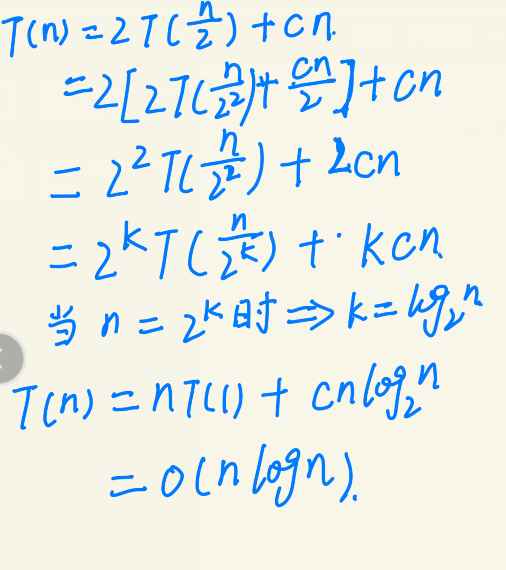 T(n) = 2T(n/2) + cn.
= 2[2T(n/2²) + cn/2] + cn
= 2²T(n/2²) + 2cn
= 2ᵏT(n/2ᵏ) + · kcn
当 n = 2ᵏ时 ⇒ k = log₂n
T(n) = nT(1) + cnlog₂n
= O(nlogn).